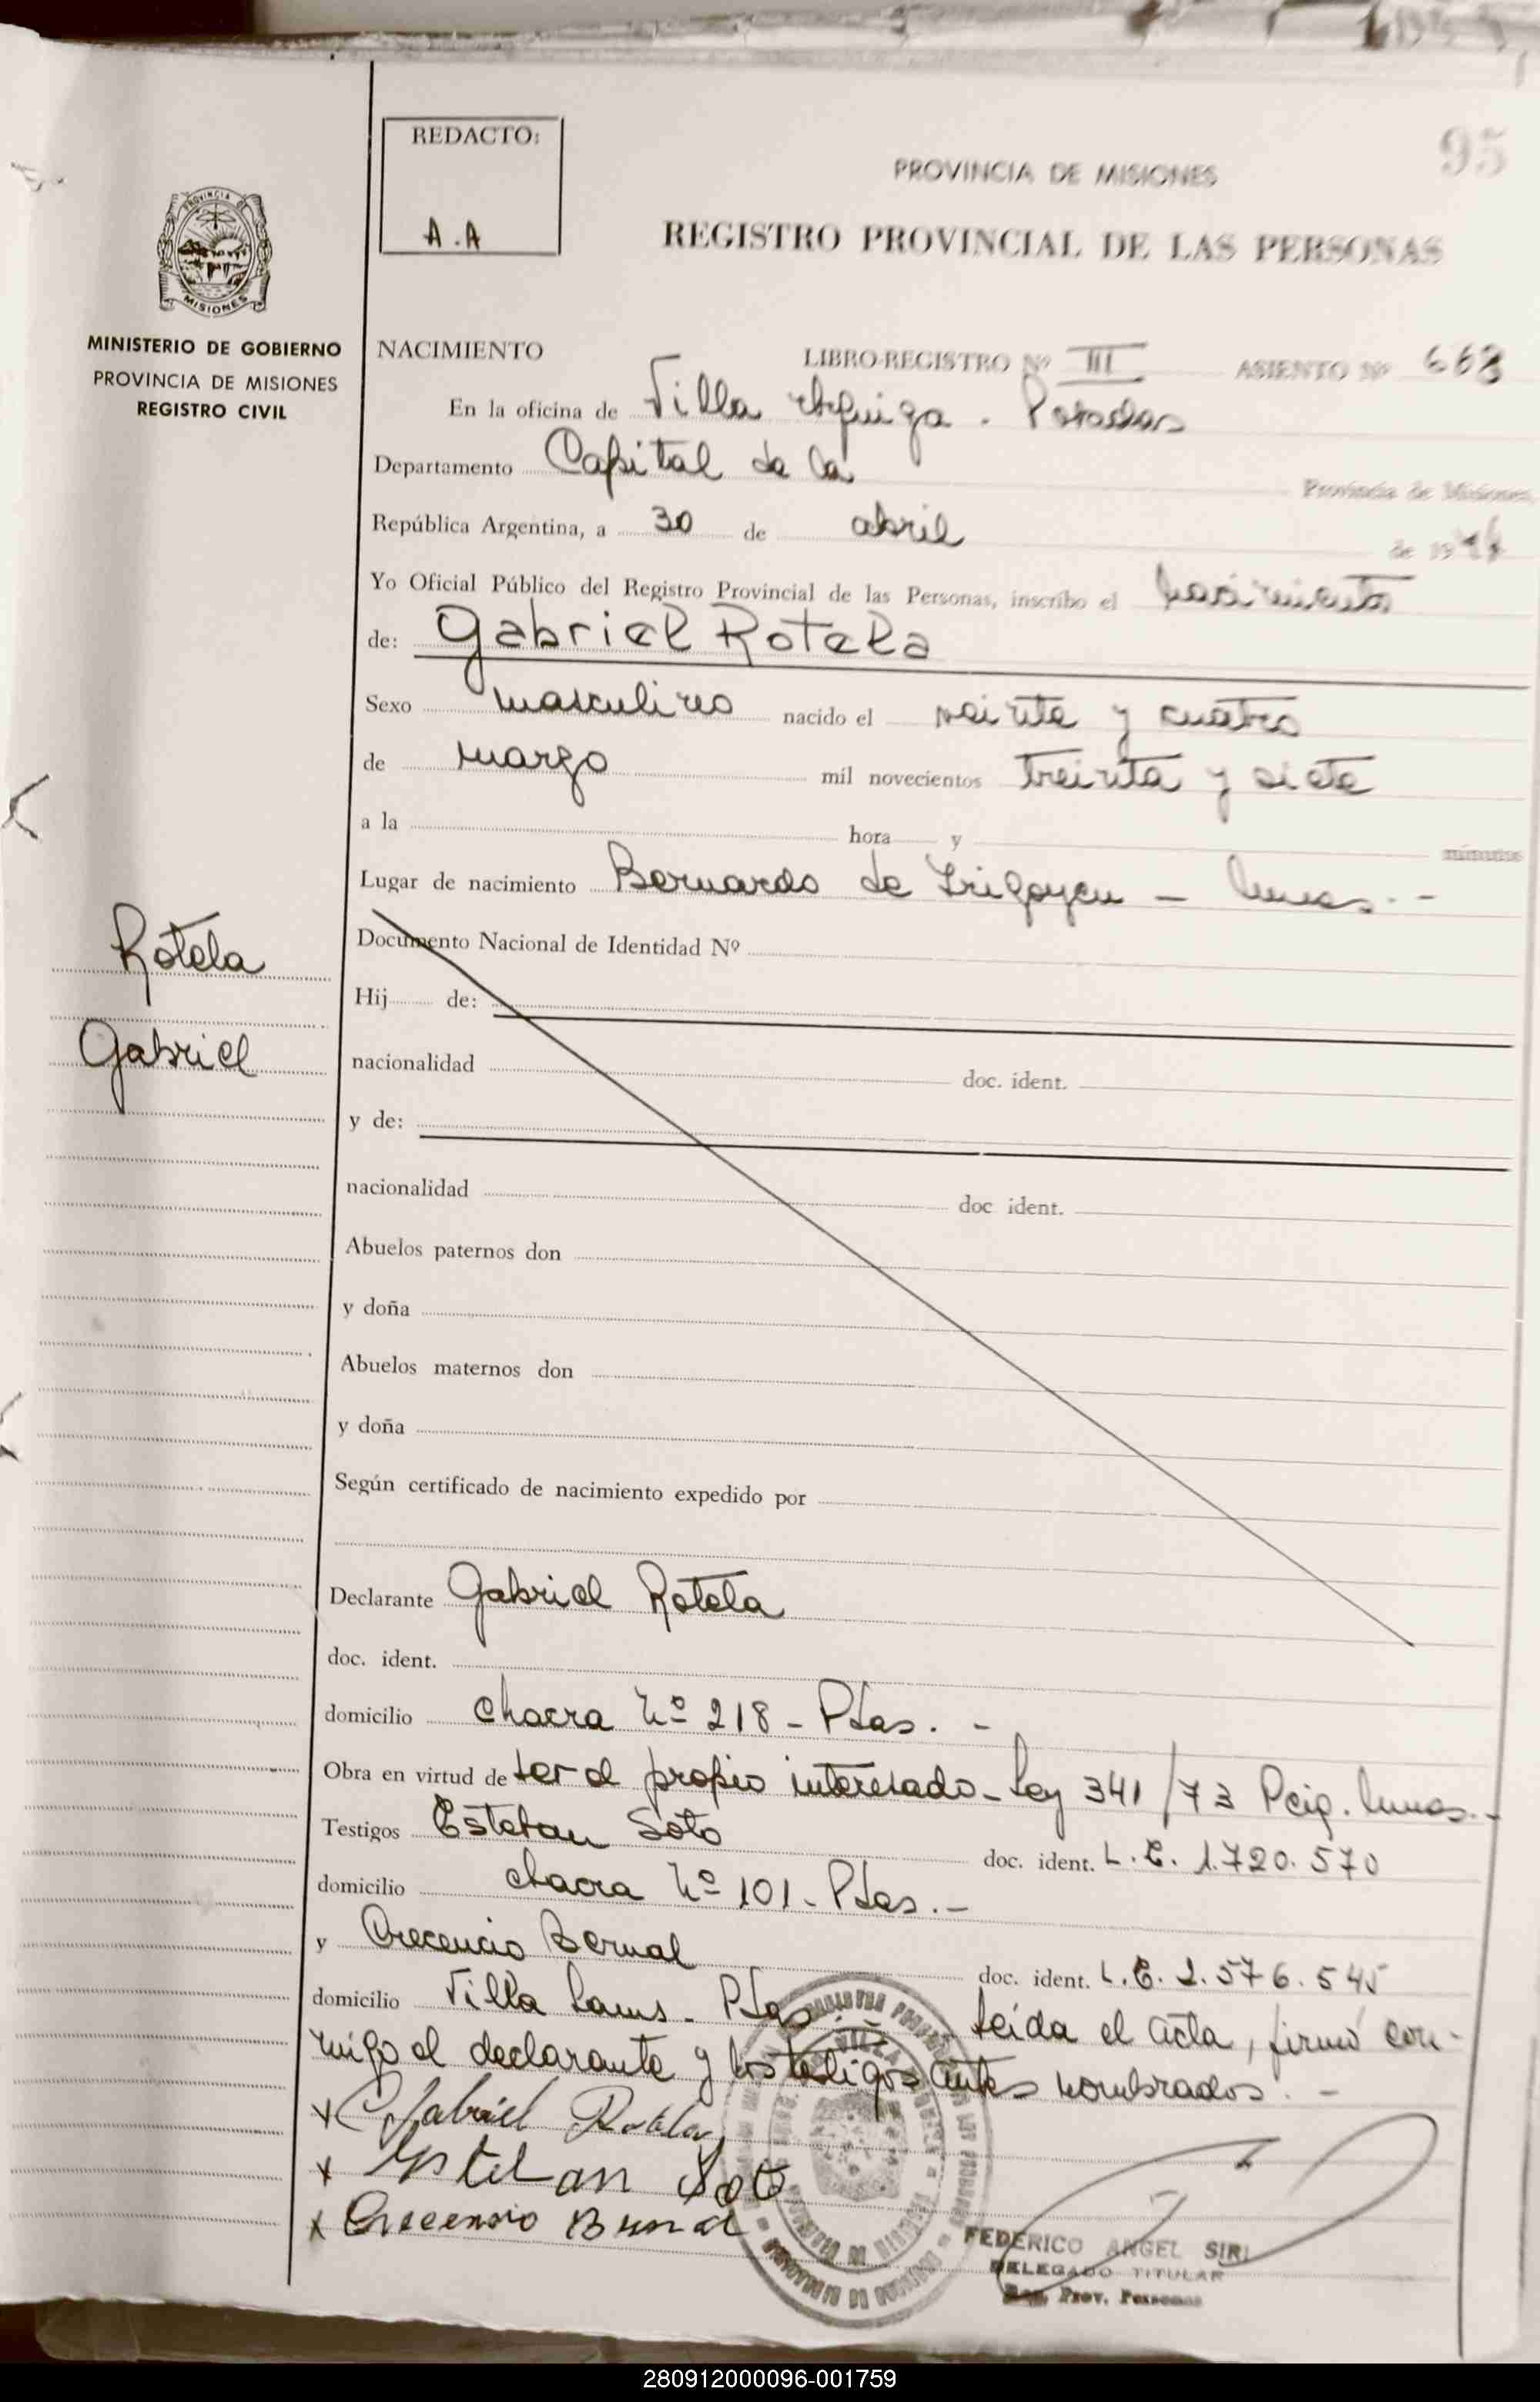 95
REDACTO:
A.A
PROVINCIA DE MISIONES
REGISTRO PROVINCIAL DE LAS PERSONAS
PROVINCIA DE
MISIONES
MINISTERIO DE GOBIERNO
PROVINCIA DE MISIONES
REGISTRO CIVIL
NACIMIENTO LIBRO-REGISTRO Nº III ASIENTO Nº 668
En la oficina de Villa Urquiza - Posadas
Departamento Capital de la Provincia de Misiones,
República Argentina, a 30 de abril de 19
Yo Oficial Público del Registro Provincial de las Personas, inscribo el nacimiento
de: Gabriel Rotela
Sexo masculino nacido el veinte y cuatro
de marzo mil novecientos treinta y siete
a la hora y minutos
Lugar de nacimiento Bernardo de Irigoyen - Mnes. -
Rotela
Gabriel
Documento Nacional de Identidad Nº
Hij de:
nacionalidad doc. ident.
y de:
nacionalidad doc ident.
Abuelos paternos don
y doña
Abuelos maternos don
y doña
Según certificado de nacimiento expedido por
Declarante Gabriel Rotela
doc. ident.
domicilio chacra Nº 218 - Pdas. -
Obra en virtud de ser el propio interesado - Ley 341/73 Pcia. Mnes. -
Testigos Esteban Soto doc. ident. L.E. 1.720.570
domicilio chacra Nº 101 - Pdas. -
y Crecencio Bernal doc. ident. L.E. 2.576.545
domicilio Villa Lanus - Pdas. - Leida el acta, firmó con-
migo el declarante y los testigos antes nombrados. -
x Gabriel Rotela
x Esteban Soto
x Crecencio Bernal
FEDERICO ANGEL SIRI
DELEGADO TITULAR
Reg. Prov. Personas
280912000096-001759